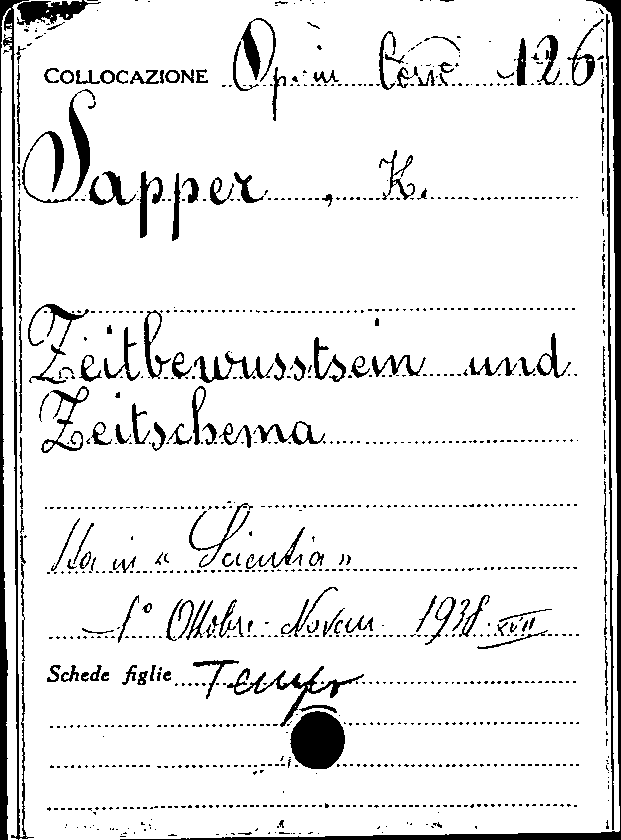 COLLOCAZIONE Op. in Corso 126
Sapper, K.
Zeitbewusstsein und
Zeitschema
Sta in « Scientia »
1° Ottobre - Novem. 1938 XVII
Schede figlie Tempo